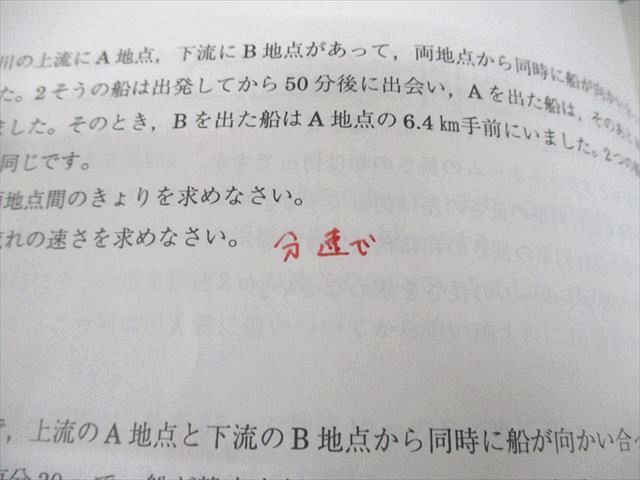 川の上流にA地点，下流にB地点があって，両地点から同時に船が向かい
た。2そうの船は出発してから50分後に出会い，Aを出た船は，そのあと
ました。そのとき，Bを出た船はA地点の6.4km手前にいました。2つの
同じです。
地点間のきょりを求めなさい。
れの速さを求めなさい。 分速で
，上流のA地点と下流のB地点から同時に船が向かい合っ